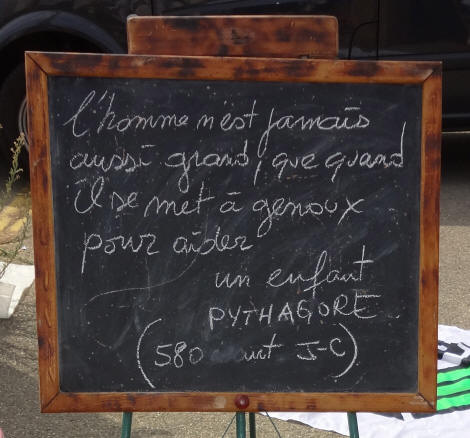 l'homme n'est jamais
aussi grand, que quand
il se met à genoux
pour aider
un enfant
PYTHAGORE
(580 J-C)